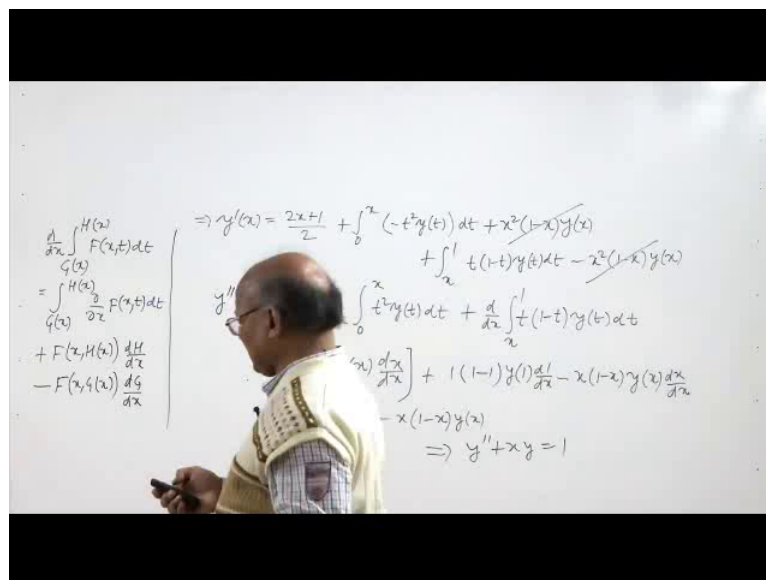 d/dx ∫_{G(x)}^{H(x)} F(x,t)dt
= ∫_{G(x)}^{H(x)} ∂/∂x F(x,t)dt
+ F(x,H(x)) dH/dx
− F(x,G(x)) dG/dx
⇒ y'(x) = (2x+1)/2 + ∫_0^x (−t²y(t)) dt + x²(1−x)y(x)
+ ∫_x^1 t(1−t)y(t)dt − x²(1−x)y(x)
y'' ∫_0^x t²y(t)dt + d/dx ∫_x^1 t(1−t)y(t)dt
x) dx/dx] + 1(1−1)y(1) d1/dx − x(1−x)y(x) dx/dx
− x(1−x)y(x)
⇒ y''+xy=1